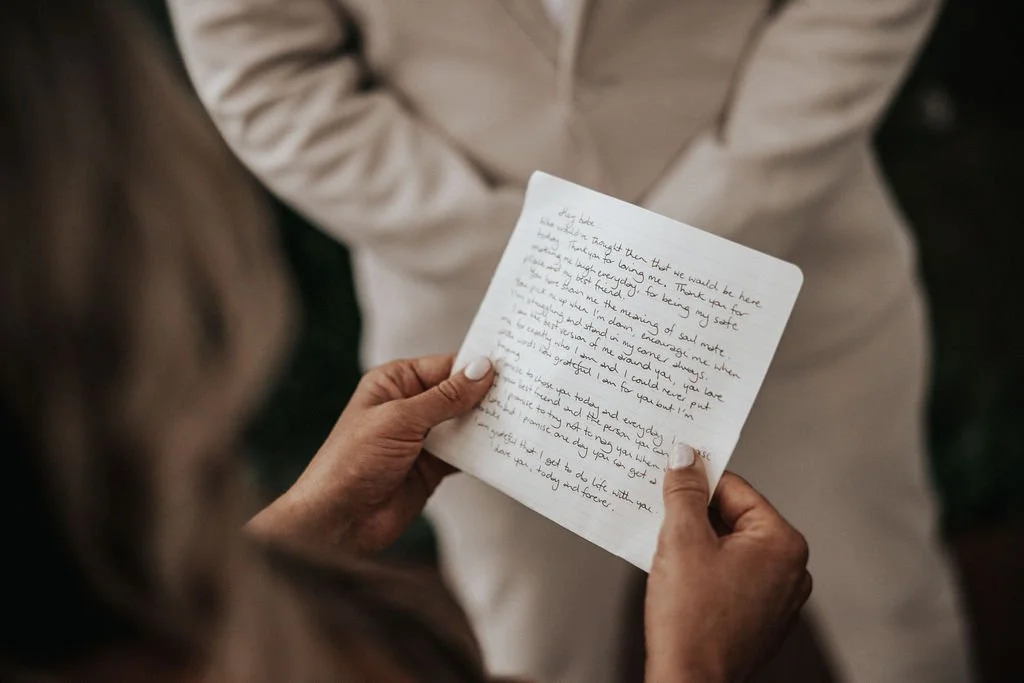 Hey babe
Who would've thought then that we would be here
today. Thank you for loving me. Thank you for
making me laugh everyday, for being my safe
place and my best friend.
You have shown me the meaning of soul mate.
You pick me up when I'm down, encourage me when
I'm struggling and stand in my corner always.
I am the best version of me around you, you love
me for exactly who I am and I could never put
into words how grateful I am for you but I'm
trying.
to chose you today and everyday, I
your best friend and the person you can
I promise to try not to nag you when
but I promise one day you can get a
am grateful that I get to do life with you.
love you, today and forever.